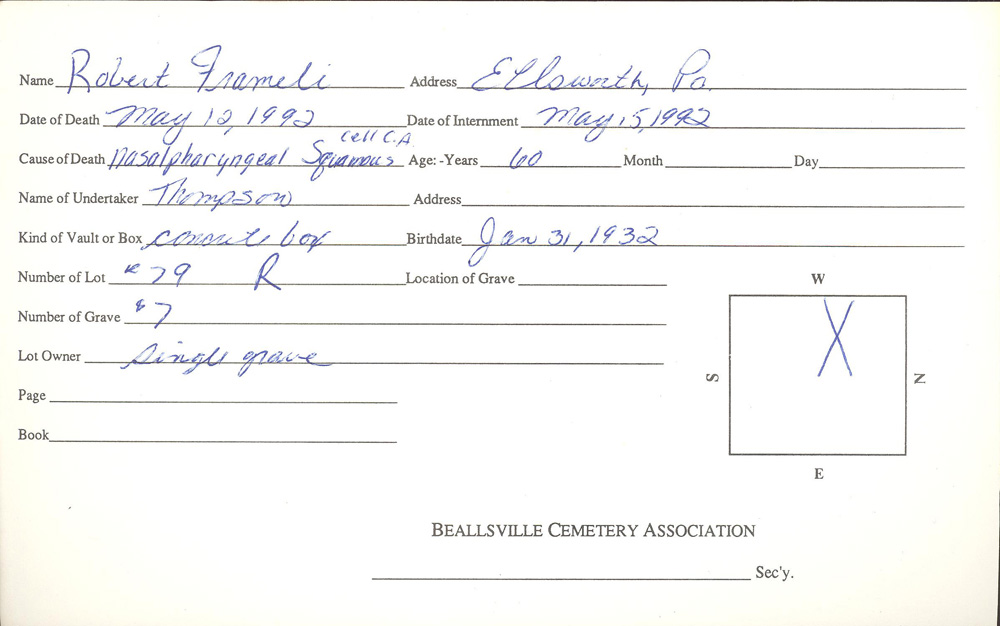 Name Robert Frameli Address Ellsworth, Pa.
Date of Death May 12, 1992 Date of Internment May 15, 1992
Cause of Death Nasalpharyngeal Squamous cell C.A. Age: -Years 60 Month Day
Name of Undertaker Thompson Address
Kind of Vault or Box concrete box Birthdate Jan 31, 1932
Number of Lot # 79 R Location of Grave
W
Number of Grave # 7
Lot Owner single grave
S X N
Page
Book
E
BEALLSVILLE CEMETERY ASSOCIATION
Sec'y.